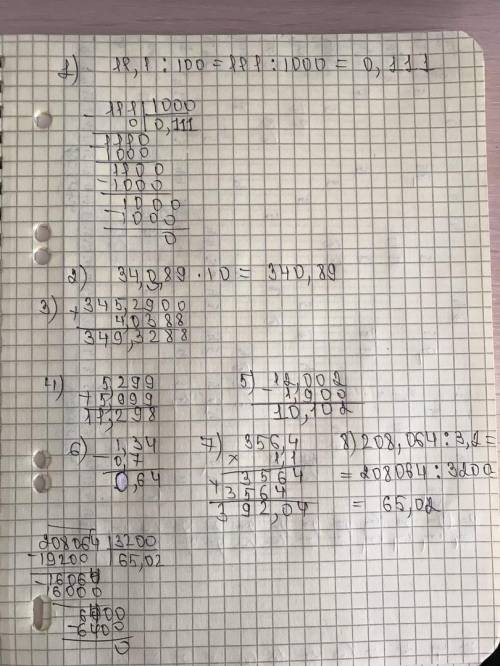 1) 11,1 : 100 = 111 : 1000 = 0,111
- 111 | 1000
0 | 0,111
- 1110
1000
1100
- 1000
1000
- 1000
0
2) 34,0,89 · 10 = 340,89
3) + 345,2900
4,0388
349,3288
4) + 5,299
5,999
11,298
5) - 12,002
1,900
10,102
6) - 1,34
0,7
0,64
7) 356,4
× 1,1
+ 3564
3564
392,04
8) 208,064 : 3,2 =
= 208064 : 3200
= 65,02
208064 | 3200
- 19200 | 65,02
- 16064
16000
6400
- 6400
0